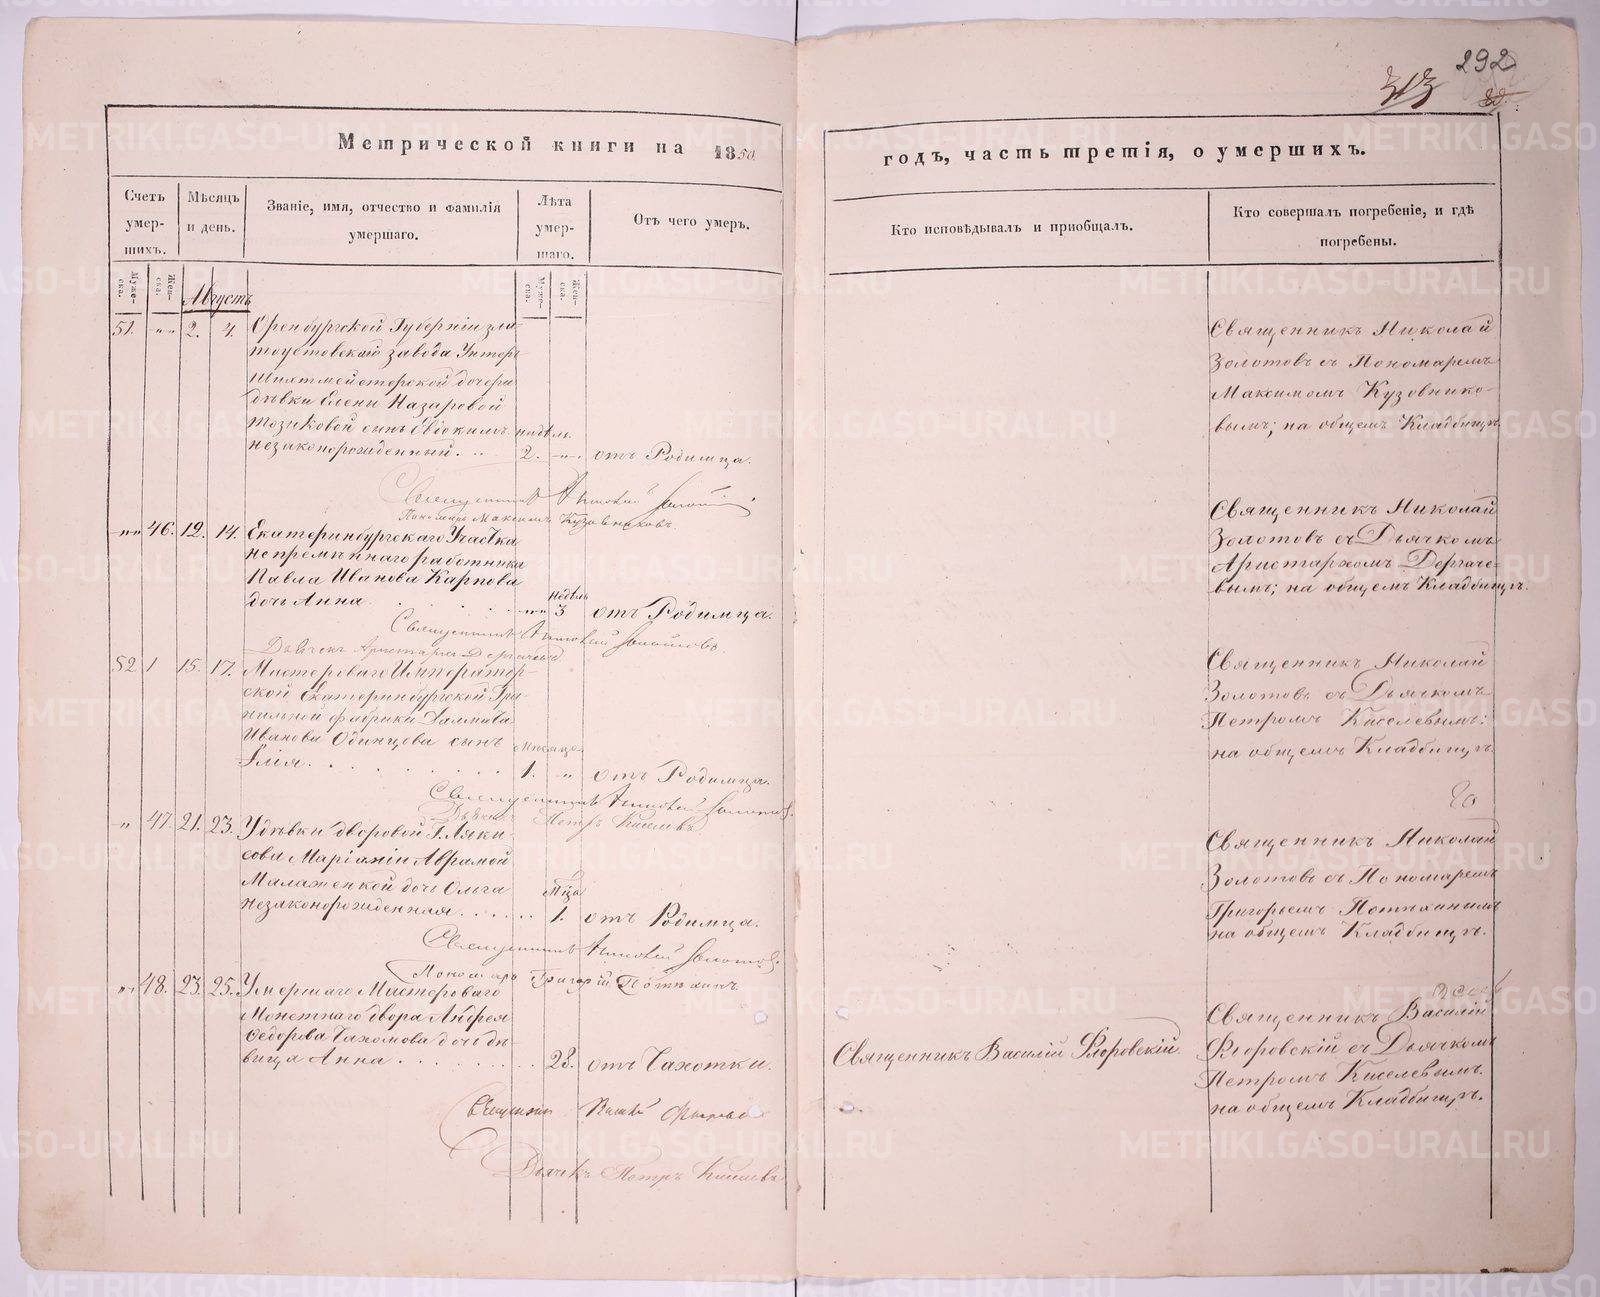 292
313
Метрической книги на 1850
годъ, часть третія, о умершихъ.
Счетъ умер-шихъ.
Мѣсяцъ и день.
Званіе, имя, отчество и фамилія умершаго.
Лѣта умер-шаго.
Отъ чего умеръ.
Кто исповѣдывалъ и пріобщалъ.
Кто совершалъ погребеніе, и гдѣ погребены.
Муже-ска.
Жен-ска.
Муже-ска.
Жен-ска.
Августъ
51. „ 2. 4. Оренбургской Губерніи зла-
тоустовскаго завода Унтеръ
Шихтмейстерской дочери
дѣвки Елены Назаровой
сынъ Евдокимъ недѣль
незаконорожденный. . . 2. „ отъ Родимца.
Священникъ Николай Золотовъ
Пономарь Максимъ Кузовниковъ.
Священникъ Николай
Золотовъ съ Пономаремъ
Максимомъ Кузовнико-
вымъ; на общемъ Кладбищѣ
„ 46. 12. 14. Екатеринбургскаго Участка
непремѣннаго работника
Павла Иванова Карпова недѣль
дочь Анна . . . . „ 3 отъ Родимца.
Священникъ Николай Золотовъ.
Дьячекъ Аристархъ Дергачевъ
Священникъ Николай
Золотовъ съ Дьячкомъ
Аристархомъ Дергаче-
вымъ; на общемъ Кладбищѣ.
52 1 15. 17. Мастероваго Император-
ской Екатеринбургской Гра-
нильной фабрики Далмата
Иванова Одинцова сынъ мѣсяцъ
Илія. . . . . . . . 1. „ отъ Родимца.
Священникъ Николай Золотовъ.
Дьячекъ Петръ Киселевъ
Священникъ Николай
Золотовъ съ Дьячкомъ
Петромъ Киселевымъ:
на общемъ Кладбищѣ
„ 47. 21. 23. У дѣвки дворовой Г. Ляки-
сова Маріамны Аврамой
Малаженкой дочь Ольга
незаконорожденная. . . . . . 1. отъ Родимца.
Священникъ Николай Золотовъ.
Пономарь Григорій Потѣхинъ
Священникъ Николай
Золотовъ съ Пономаремъ
Григорьемъ Потѣхинымъ
на общемъ Кладбищѣ.
„ 48. 23. 25. Умершаго Мастероваго
Монетнаго двора Андрея
Ѳедорова Пахомова дочь дѣ-
вица Анна . . . . . . . . . 28. отъ Чахотки.
Священникъ Василій Флоровскій.
Священникъ Василій
Флоровскій съ Дьячкомъ
Петромъ Киселевымъ.
на общемъ Кладбищѣ.
Священникъ Василій Флоровскій
Дьячекъ Петръ Киселевъ
METRIKI.GASO-URAL.RU